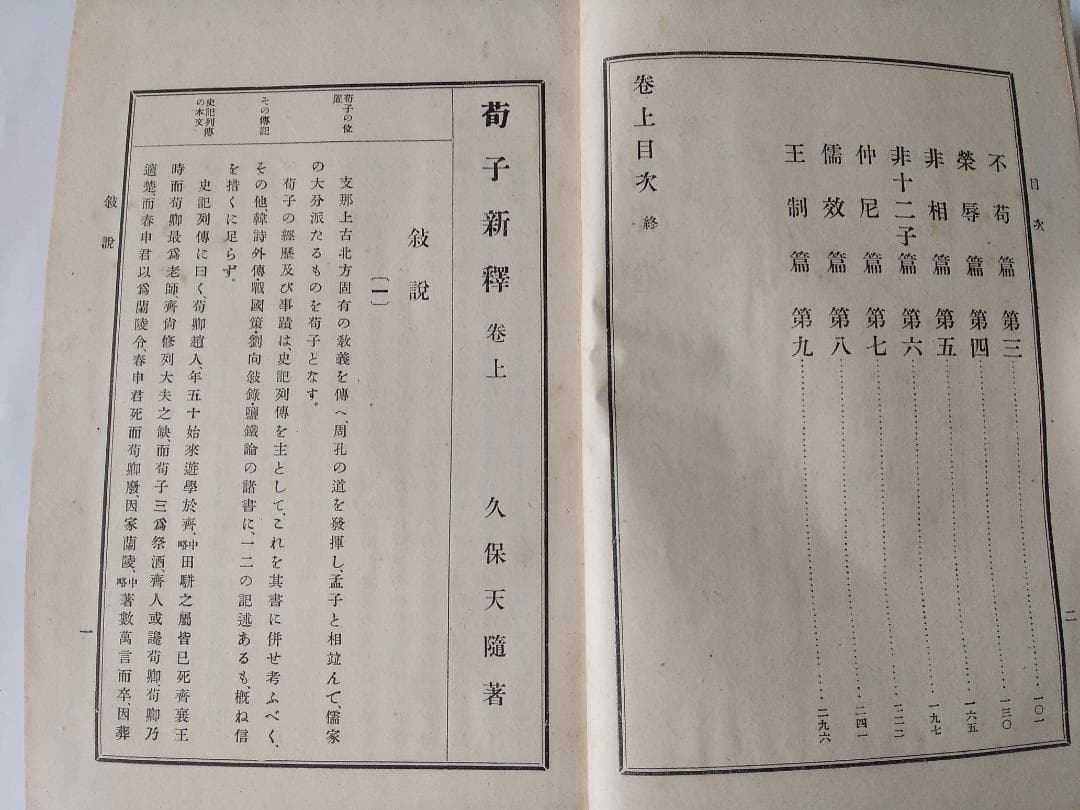 目次
二
不苟篇第三………一〇一
榮辱篇第四………一三〇
非相篇第五………一六五
非十二子篇第六………一九七
仲尼篇第七………二二二
儒效篇第八………二四一
王制篇第九………二九六
卷上目次 終
荀子新釋 卷上 久保天隨著
敍說
〔一〕
荀子の位置
支那上古北方固有の敎義を傳へ、周孔の道を發揮し、孟子と相竝んで、儒家
の大分派たるものを荀子となす。
その傳記
荀子の經歷及び事蹟は、史記列傳を主として、これを其書に併せ考ふべく、
その他韓詩外傳・戰國策・劉向敍錄・鹽鐵論の諸書に、一二の記述あるも、概ね信
を措くに足らず。
史記列傳の本文
史記列傳に曰く、荀卿趙人、年五十始來遊學於齊、中略田駢之屬皆已死齊襄王
時而荀卿最爲老師、齊尙修列大夫之缺、而荀子三爲祭酒、齊人或讒荀卿荀卿乃
適楚、而春申君以爲蘭陵令、春申君死而荀卿廢、因家蘭陵中略著數萬言而卒、因葬
敍說
一